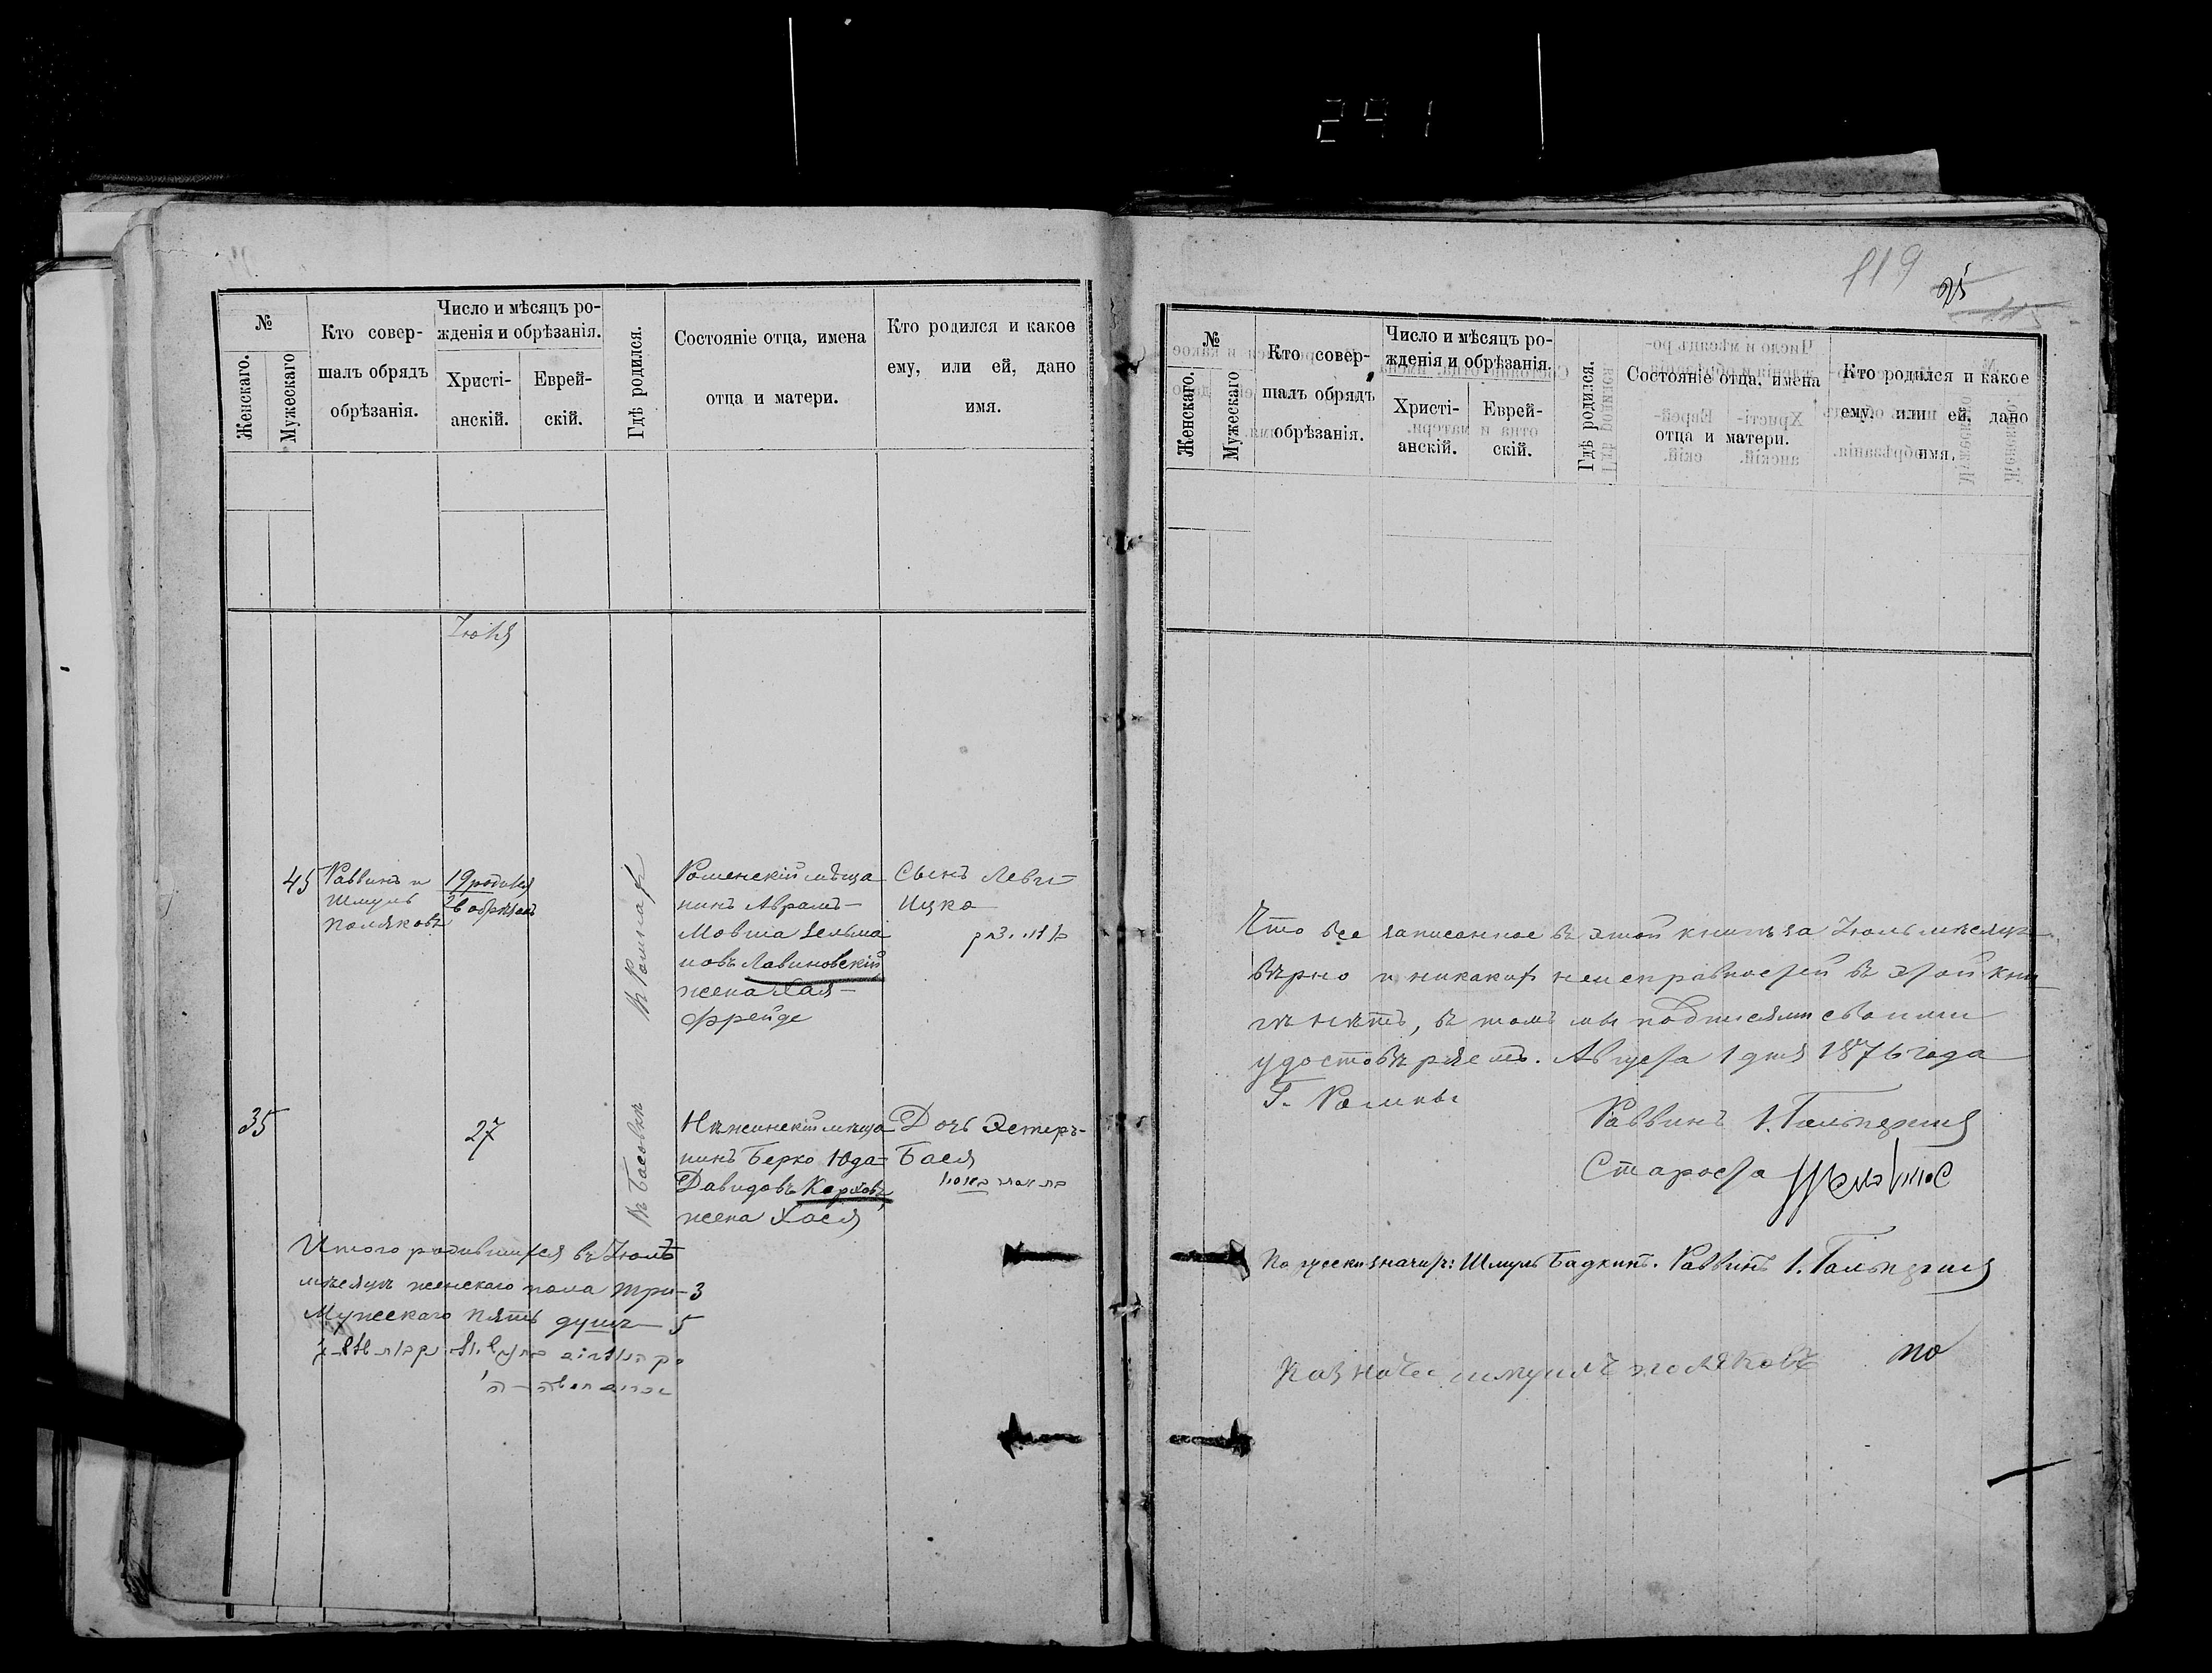 291
119
25
115
№
Женскаго.
Мужескаго
Кто совер-
шалъ обрядъ
обрѣзанія.
Число и мѣсяцъ ро-
жденія и обрѣзанія.
Христі-
анскій.
Еврей-
скій.
Гдѣ родился.
Состояніе отца, имена
отца и матери.
Кто родился и какое
ему, или ей, дано
имя.
Іюля
45
Раввинъ и
Шмуль
Поляковъ
19 родился
26 обрѣзанъ
въ Ромнахъ
Роменскій мѣща
нинъ Аврамъ-
Мовша Зельма
новъ Лавиновскій
жена Хая-
Фрейде
Сынъ Леви-
Ицко
35
27
въ Басовкѣ
Нѣжинскій мѣща-
нинъ Берко Юда-
Давидовъ
жена Хася
Дочь Эстеръ-
Бася
Итого родившихся въ Іюлѣ
мѣсяцѣ женскаго пола три-3
Мужескаго пять душъ-5
№
Женскаго.
Мужескаго
Кто совер-
шалъ обрядъ
обрѣзанія.
Число и мѣсяцъ ро-
жденія и обрѣзанія.
Христі-
анскій.
Еврей-
скій.
Гдѣ родился.
Состояніе отца, имена
отца и матери.
Кто родился и какое
ему, или ей, дано
имя.
Что все записанное въ этой книгѣ за Іюль мѣсяцъ
вѣрно и никакихъ неисправностей въ этой кни
гѣ нѣтъ, въ томъ мы подписями своими
удостовѣряемъ. Августа 1 дня 1876 года
Г. Ромны
Раввинъ І. Гальперинъ
Староста
По русски значитъ: Шмуль Бадкинъ. Раввинъ І. Гальперинъ
Казначей шмуилъ поляковъ
по